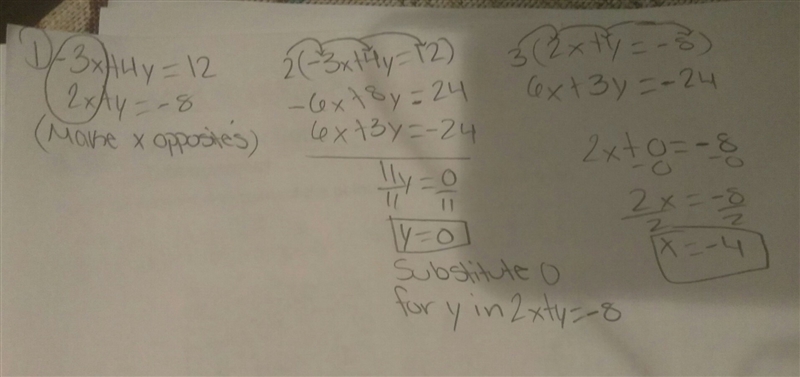 1) -3x+4y=12
2x+y=-8
(Make x opposites)
2(-3x+4y=12)
-6x+8y=24
6x+3y=-24
11y/11=0/11
y=0
Substitute 0
for y in 2x+y=-8
3(2x+y=-8)
6x+3y=-24
2x+0=-8
-0 -0
2x/2=-8/2
x=-4